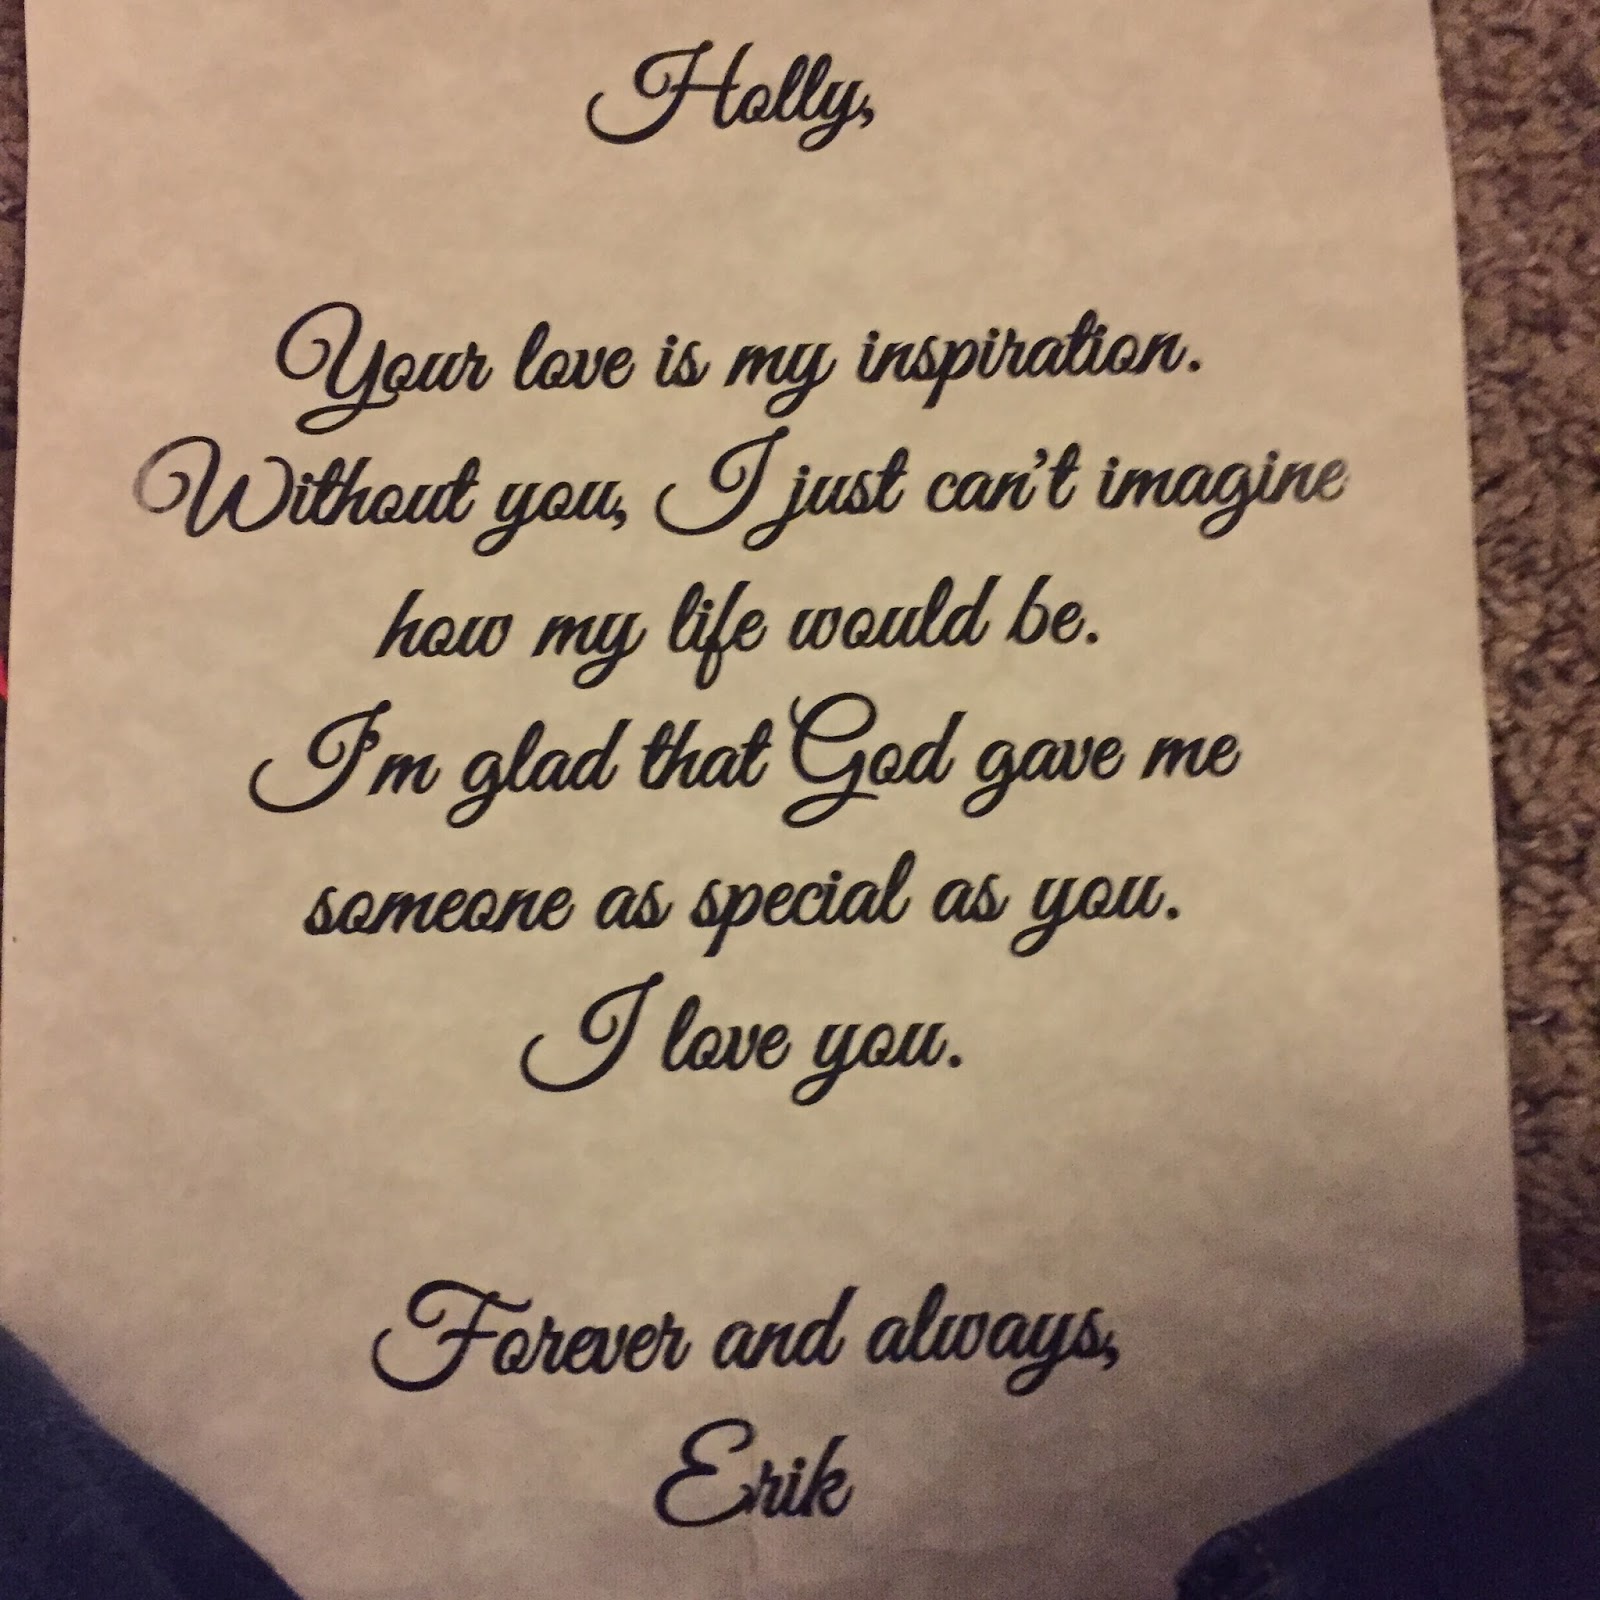 Holly,
Your love is my inspiration.
Without you, I just can't imagine
how my life would be.
I'm glad that God gave me
someone as special as you.
I love you.
Forever and always,
Erik